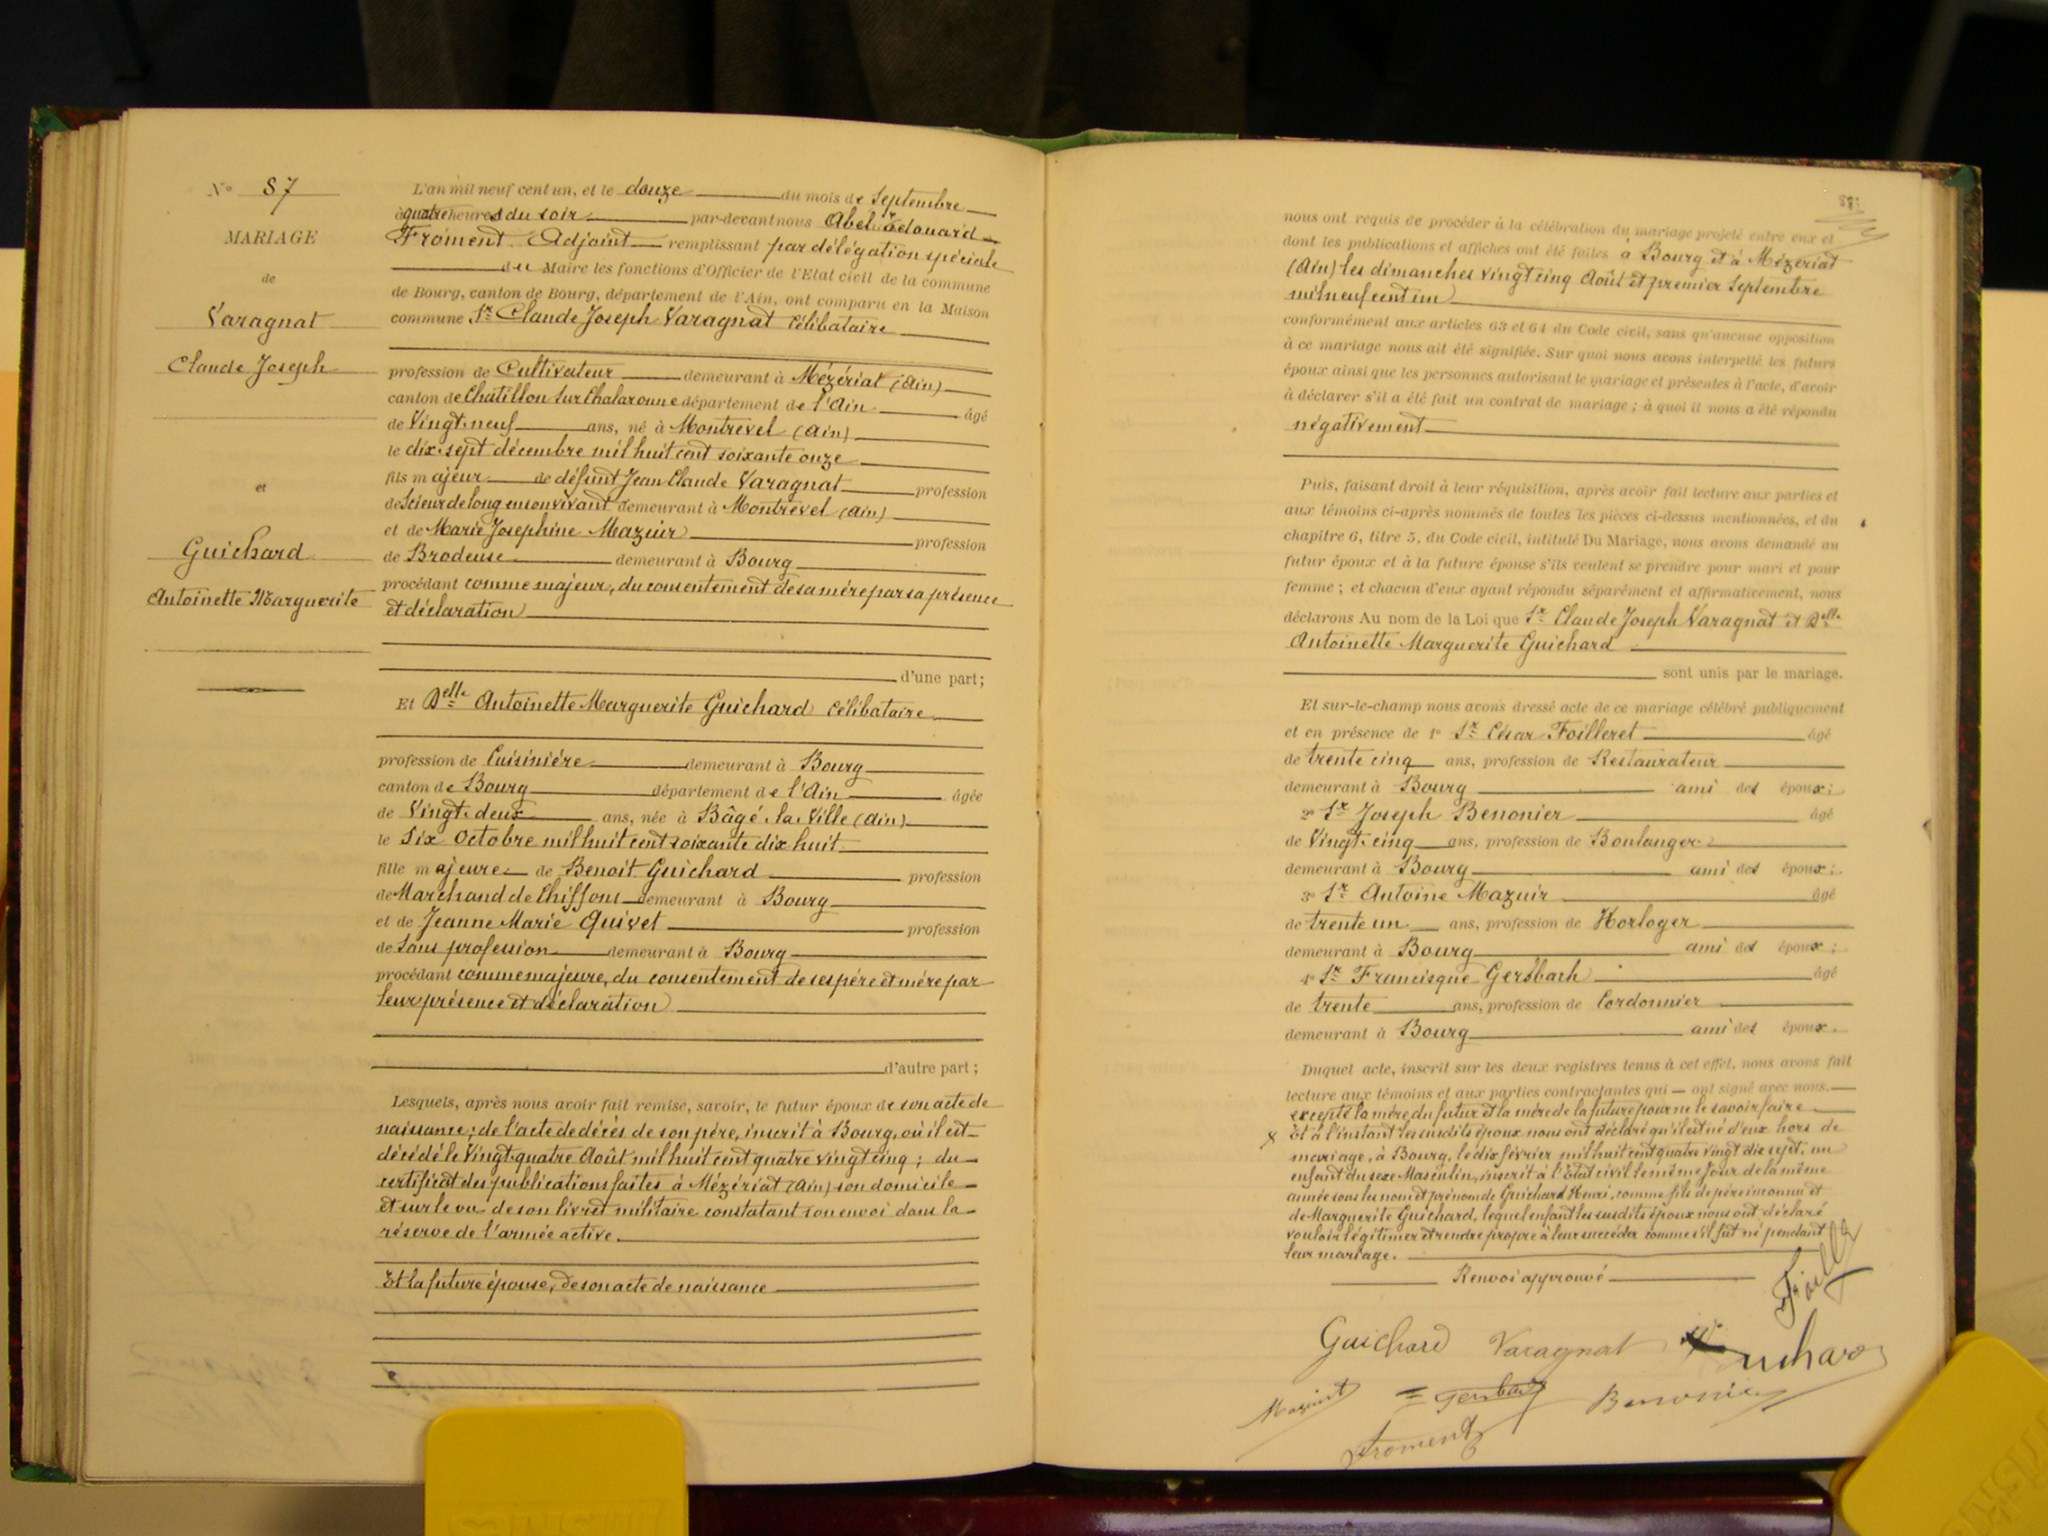 N° 87
MARIAGE
de
Varagnat
Claude Joseph
et
Guichard
Antoinette Marguerite
L'an mil neuf cent un, et le douze du mois de Septembre
à quatre heures du soir par-devant nous Abel Edouard
Froment Adjoint remplissant par délégation spéciale
du Maire les fonctions d'Officier de l'Etat civil de la commune
de Bourg, canton de Bourg, département de l'Ain, ont comparu en la Maison
commune Sr Claude Joseph Varagnat Célibataire
profession de Cultivateur demeurant à Mézériat (Ain)
canton de Chatillon sur Chalaronne département de l'Ain âgé
de Vingt-neuf ans, né à Montrevel (Ain)
le dix-sept décembre mil huit cent soixante onze
fils majeur de défunt Jean Claude Varagnat profession
de Scieur de long en son vivant demeurant à Montrevel (Ain)
et de Marie Josephine Mazuir profession
de Brodeuse demeurant à Bourg
procédant comme majeur, du consentement de sa mère par sa présence
et déclaration
d'une part;
Et Delle Antoinette Marguerite Guichard célibataire
profession de Cuisinière demeurant à Bourg
canton de Bourg département de l'Ain âgée
de Vingt-deux ans, née à Bâgé-la-Ville (Ain)
le Six Octobre mil huit cent soixante dix huit
fille majeure de Benoit Guichard profession
de Marchand de Chiffons demeurant à Bourg
et de Jeanne Marie Quivet profession
de Sans profession demeurant à Bourg
procédant comme majeure, du consentement de ses père et mère par
leur présence et déclaration
d'autre part;
Lesquels, après nous avoir fait remise, savoir, le futur époux de son acte de
naissance; de l'acte de décès de son père, inscrit à Bourg, où il est
décédé le Vingt-quatre Août mil huit cent quatre vingt cinq; du
certificat des publications faites à Mézériat (Ain) son domicile
et sur le vu de son livret militaire constatant son envoi dans la
réserve de l'armée active.
Et la future épouse, de son acte de naissance
nous ont requis de procéder à la célébration du mariage projeté entre eux et
dont les publications et affiches ont été faites à Bourg et à Mézériat
(Ain) les dimanches vingt cinq Août et premier Septembre
mil neuf cent un
conformément aux articles 63 et 64 du Code civil, sans qu'aucune opposition
à ce mariage nous ait été signifiée. Sur quoi nous avons interpellé les futurs
époux ainsi que les personnes autorisant le mariage et présentes à l'acte, d'avoir
à déclarer s'il a été fait un contrat de mariage; à quoi il nous a été répondu
négativement
Puis, faisant droit à leur réquisition, après avoir fait lecture aux parties et
aux témoins ci-après nommés de toutes les pièces ci-dessus mentionnées, et du
chapitre 6, titre 5, du Code civil, intitulé Du Mariage, nous avons demandé au
futur époux et à la future épouse s'ils veulent se prendre pour mari et pour
femme; et chacun d'eux ayant répondu séparément et affirmativement, nous
déclarons Au nom de la Loi que Sr Claude Joseph Varagnat et Delle
Antoinette Marguerite Guichard
sont unis par le mariage.
Et sur-le-champ nous avons dressé acte de ce mariage célébré publiquement
et en présence de 1° Sr César Foilleret âgé
de trente cinq ans, profession de Restaurateur
demeurant à Bourg ami des époux;
2° Sr Joseph Benonier âgé
de Vingt-cinq ans, profession de Boulanger
demeurant à Bourg ami des époux;
3° Sr Antoine Mazuir âgé
de trente un ans, profession de Horloger
demeurant à Bourg ami des époux;
4° Sr Francisque Gersbach âgé
de trente ans, profession de Cordonnier
demeurant à Bourg ami des époux.
Duquel acte, inscrit sur les deux registres tenus à cet effet, nous avons fait
lecture aux témoins et aux parties contractantes qui ont signé avec nous.
excepté la mère du futur et la mère de la future pour ne le savoir faire
x Et à l'instant les susdits époux nous ont déclaré qu'il est né d'eux hors de
mariage, à Bourg, le dix février mil huit cent quatre vingt dix sept, un
enfant du sexe Masculin, inscrit à l'Etat civil le même jour de la même
année sous les nom et prénom de Guichard Henri, comme fils de père inconnu et
de Marguerite Guichard, lequel enfant les susdits époux nous ont déclaré
vouloir légitimer et rendre propre à leur succéder comme s'il fut né pendant
leur mariage.
Renvoi approuvé
Guichard Varagnat
Mazuir Gersbach Benonier
Froment